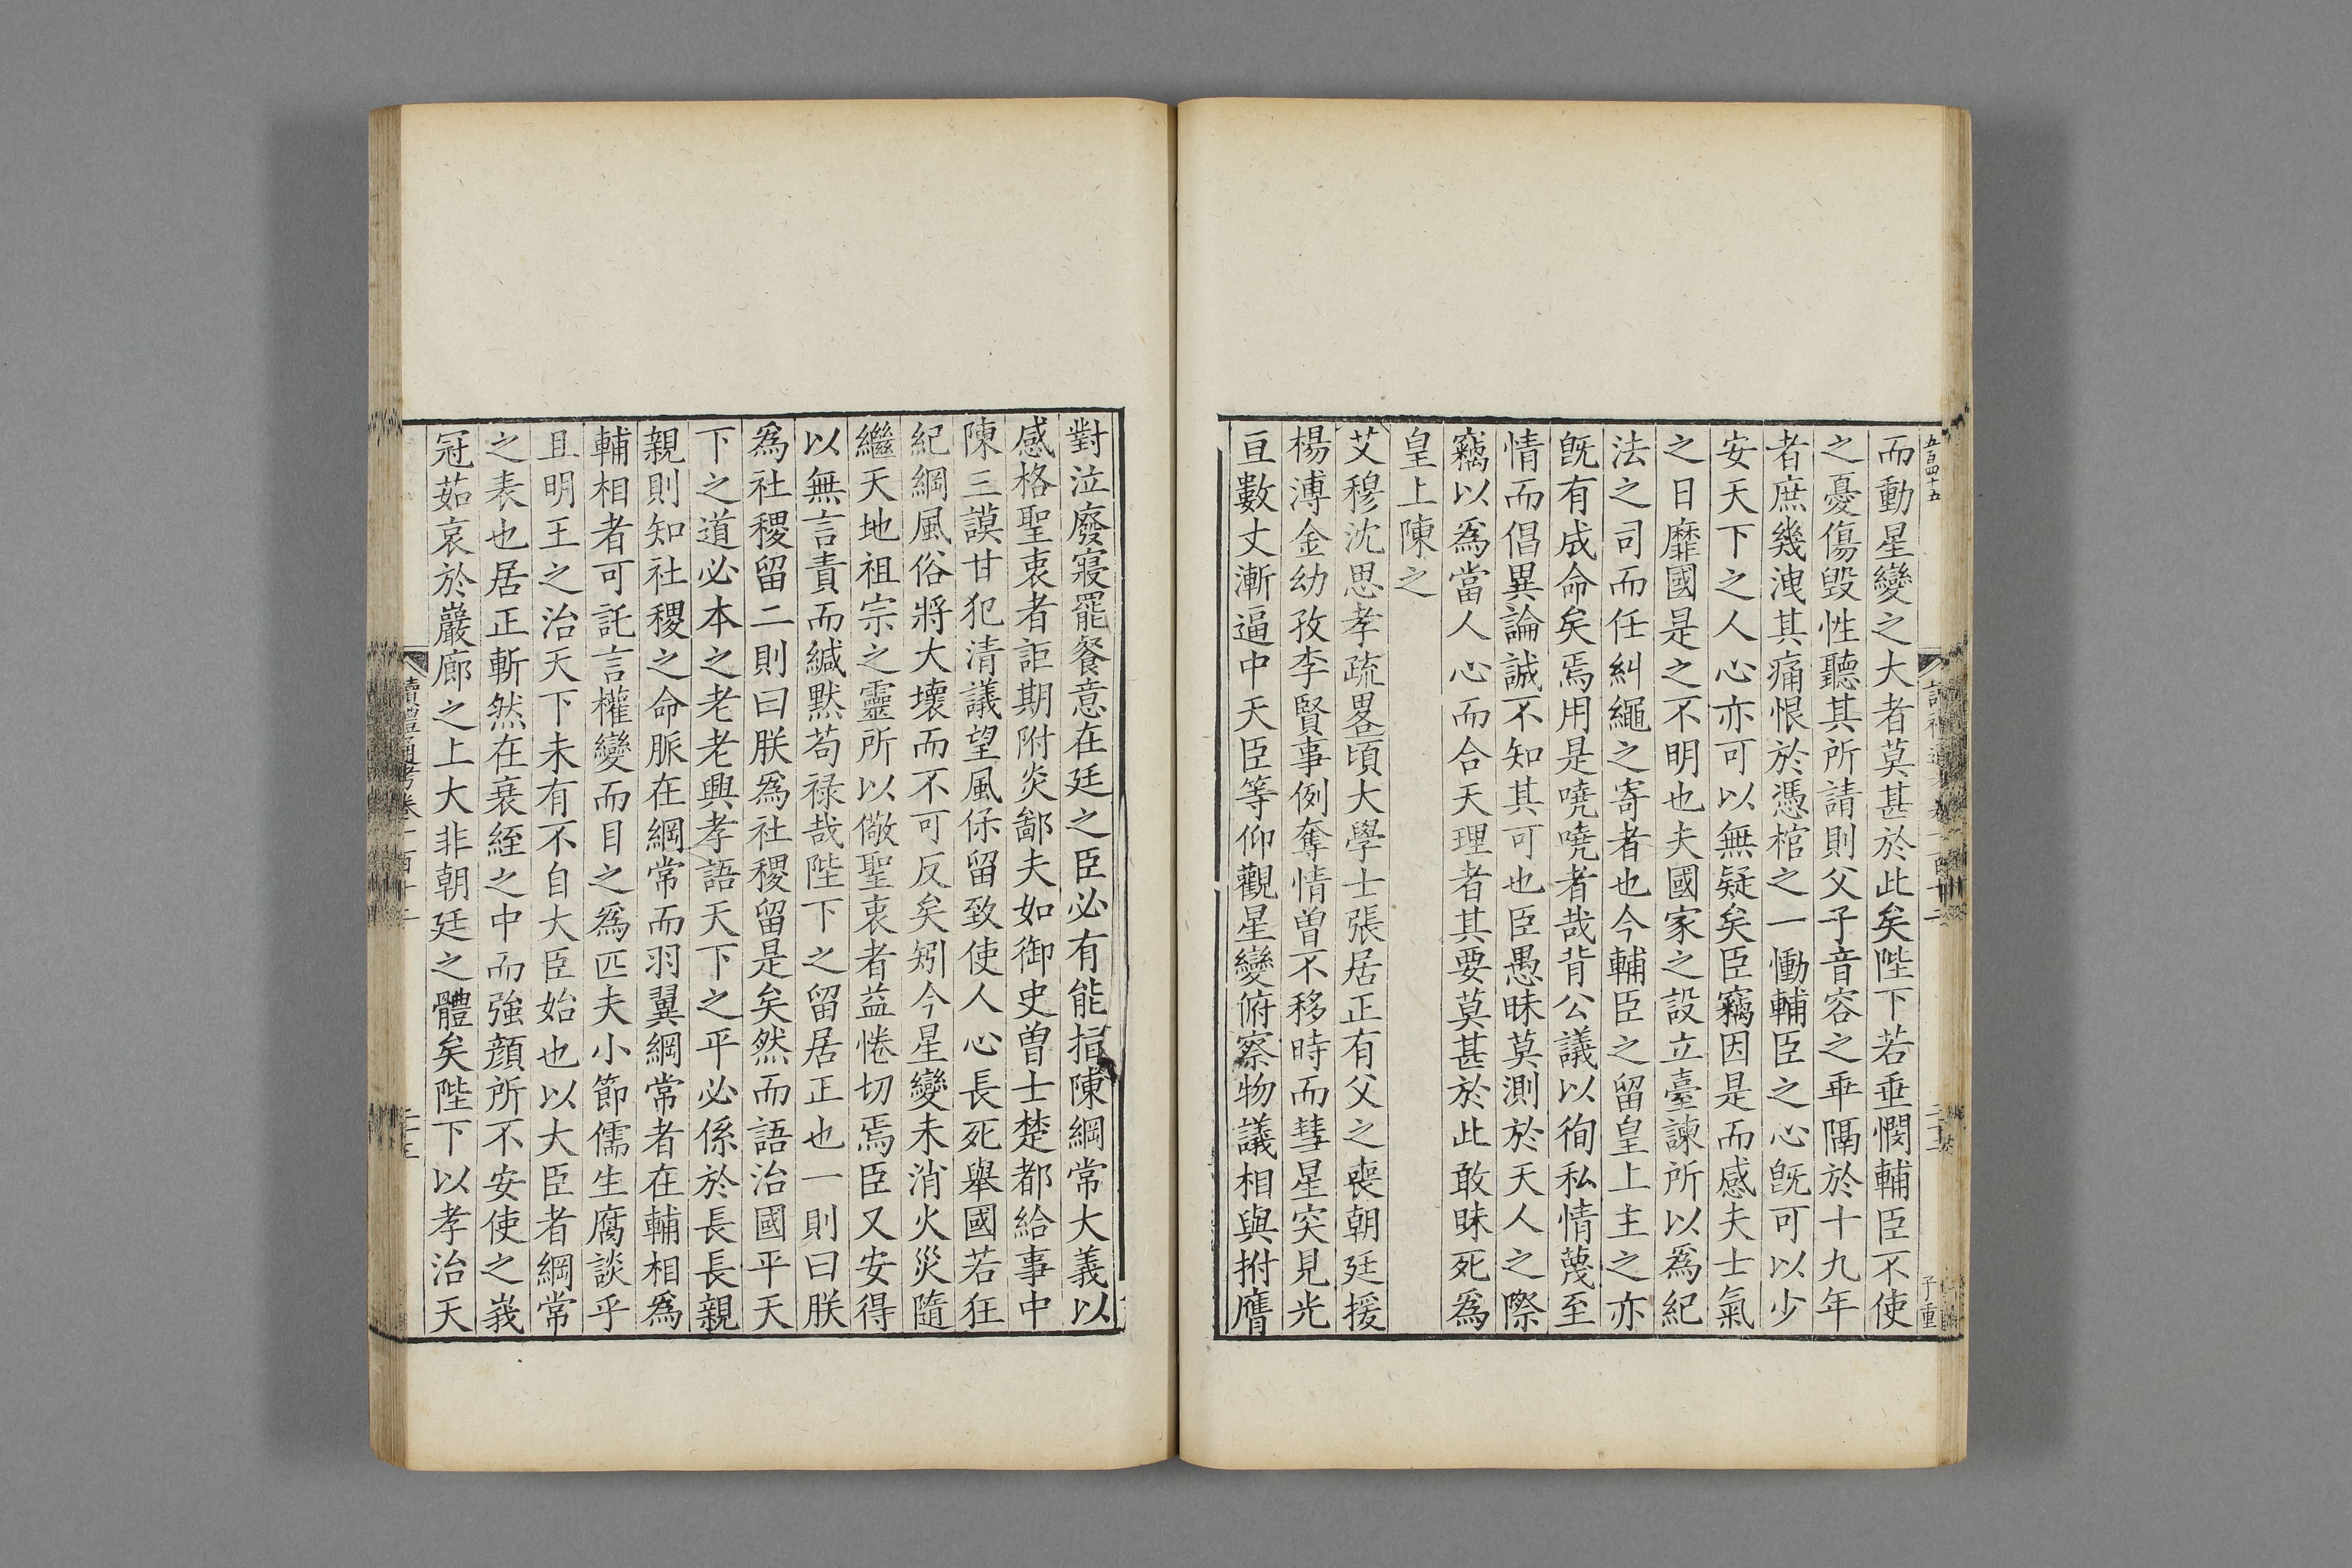 五百四十五
而動星變之大者莫甚於此矣陛下若垂憫輔臣不使
之憂傷毀性聽其所請則父子音容之乖隔於十九年
者庶幾洩其痛恨於憑棺之一慟輔臣之心旣可以少
安天下之人心亦可以無疑矣臣竊因是而感夫士氣
之日靡國是之不明也夫國家之設立臺諫所以爲紀
法之司而任糾繩之寄者也今輔臣之留皇上主之亦
旣有成命矣焉用是嘵嘵者哉背公議以徇私情蔑至
情而倡異論誠不知其可也臣愚昧莫測於天人之際
竊以爲當人心而合天理者其要莫甚於此敢昧死爲
皇上陳之
艾穆沈思孝疏畧頃大學士張居正有父之喪朝廷援
楊溥金幼孜李賢事例奪情曾不移時而彗星突見光
亘數丈漸逼中天臣等仰觀星變俯察物議相與拊膺
對泣廢寢罷餐意在廷之臣必有能指陳綱常大義以
感格聖衷者詎期附炎鄙夫如御史曾士楚都給事中
陳三謨甘犯清議望風保留致使人心長死舉國若狂
紀綱風俗將大壞而不可反矣矧今星變未消火災隨
繼天地祖宗之靈所以儆聖衷者益惓切焉臣又安得
以無言責而緘默苟禄哉陛下之留居正也一則曰朕
爲社稷留二則曰朕爲社稷留是矣然而語治國平天
下之道必本之老老興孝語天下之平必係於長長親
親則知社稷之命脈在綱常而羽翼綱常者在輔相爲
輔相者可託言權變而目之爲匹夫小節儒生腐談乎
且明王之治天下未有不自大臣始也以大臣者綱常
之表也居正斬然在衰絰之中而強顔所不安使之峩
冠茹哀於巖廊之上大非朝廷之體矣陛下以孝治天
讀禮通考卷一百十二